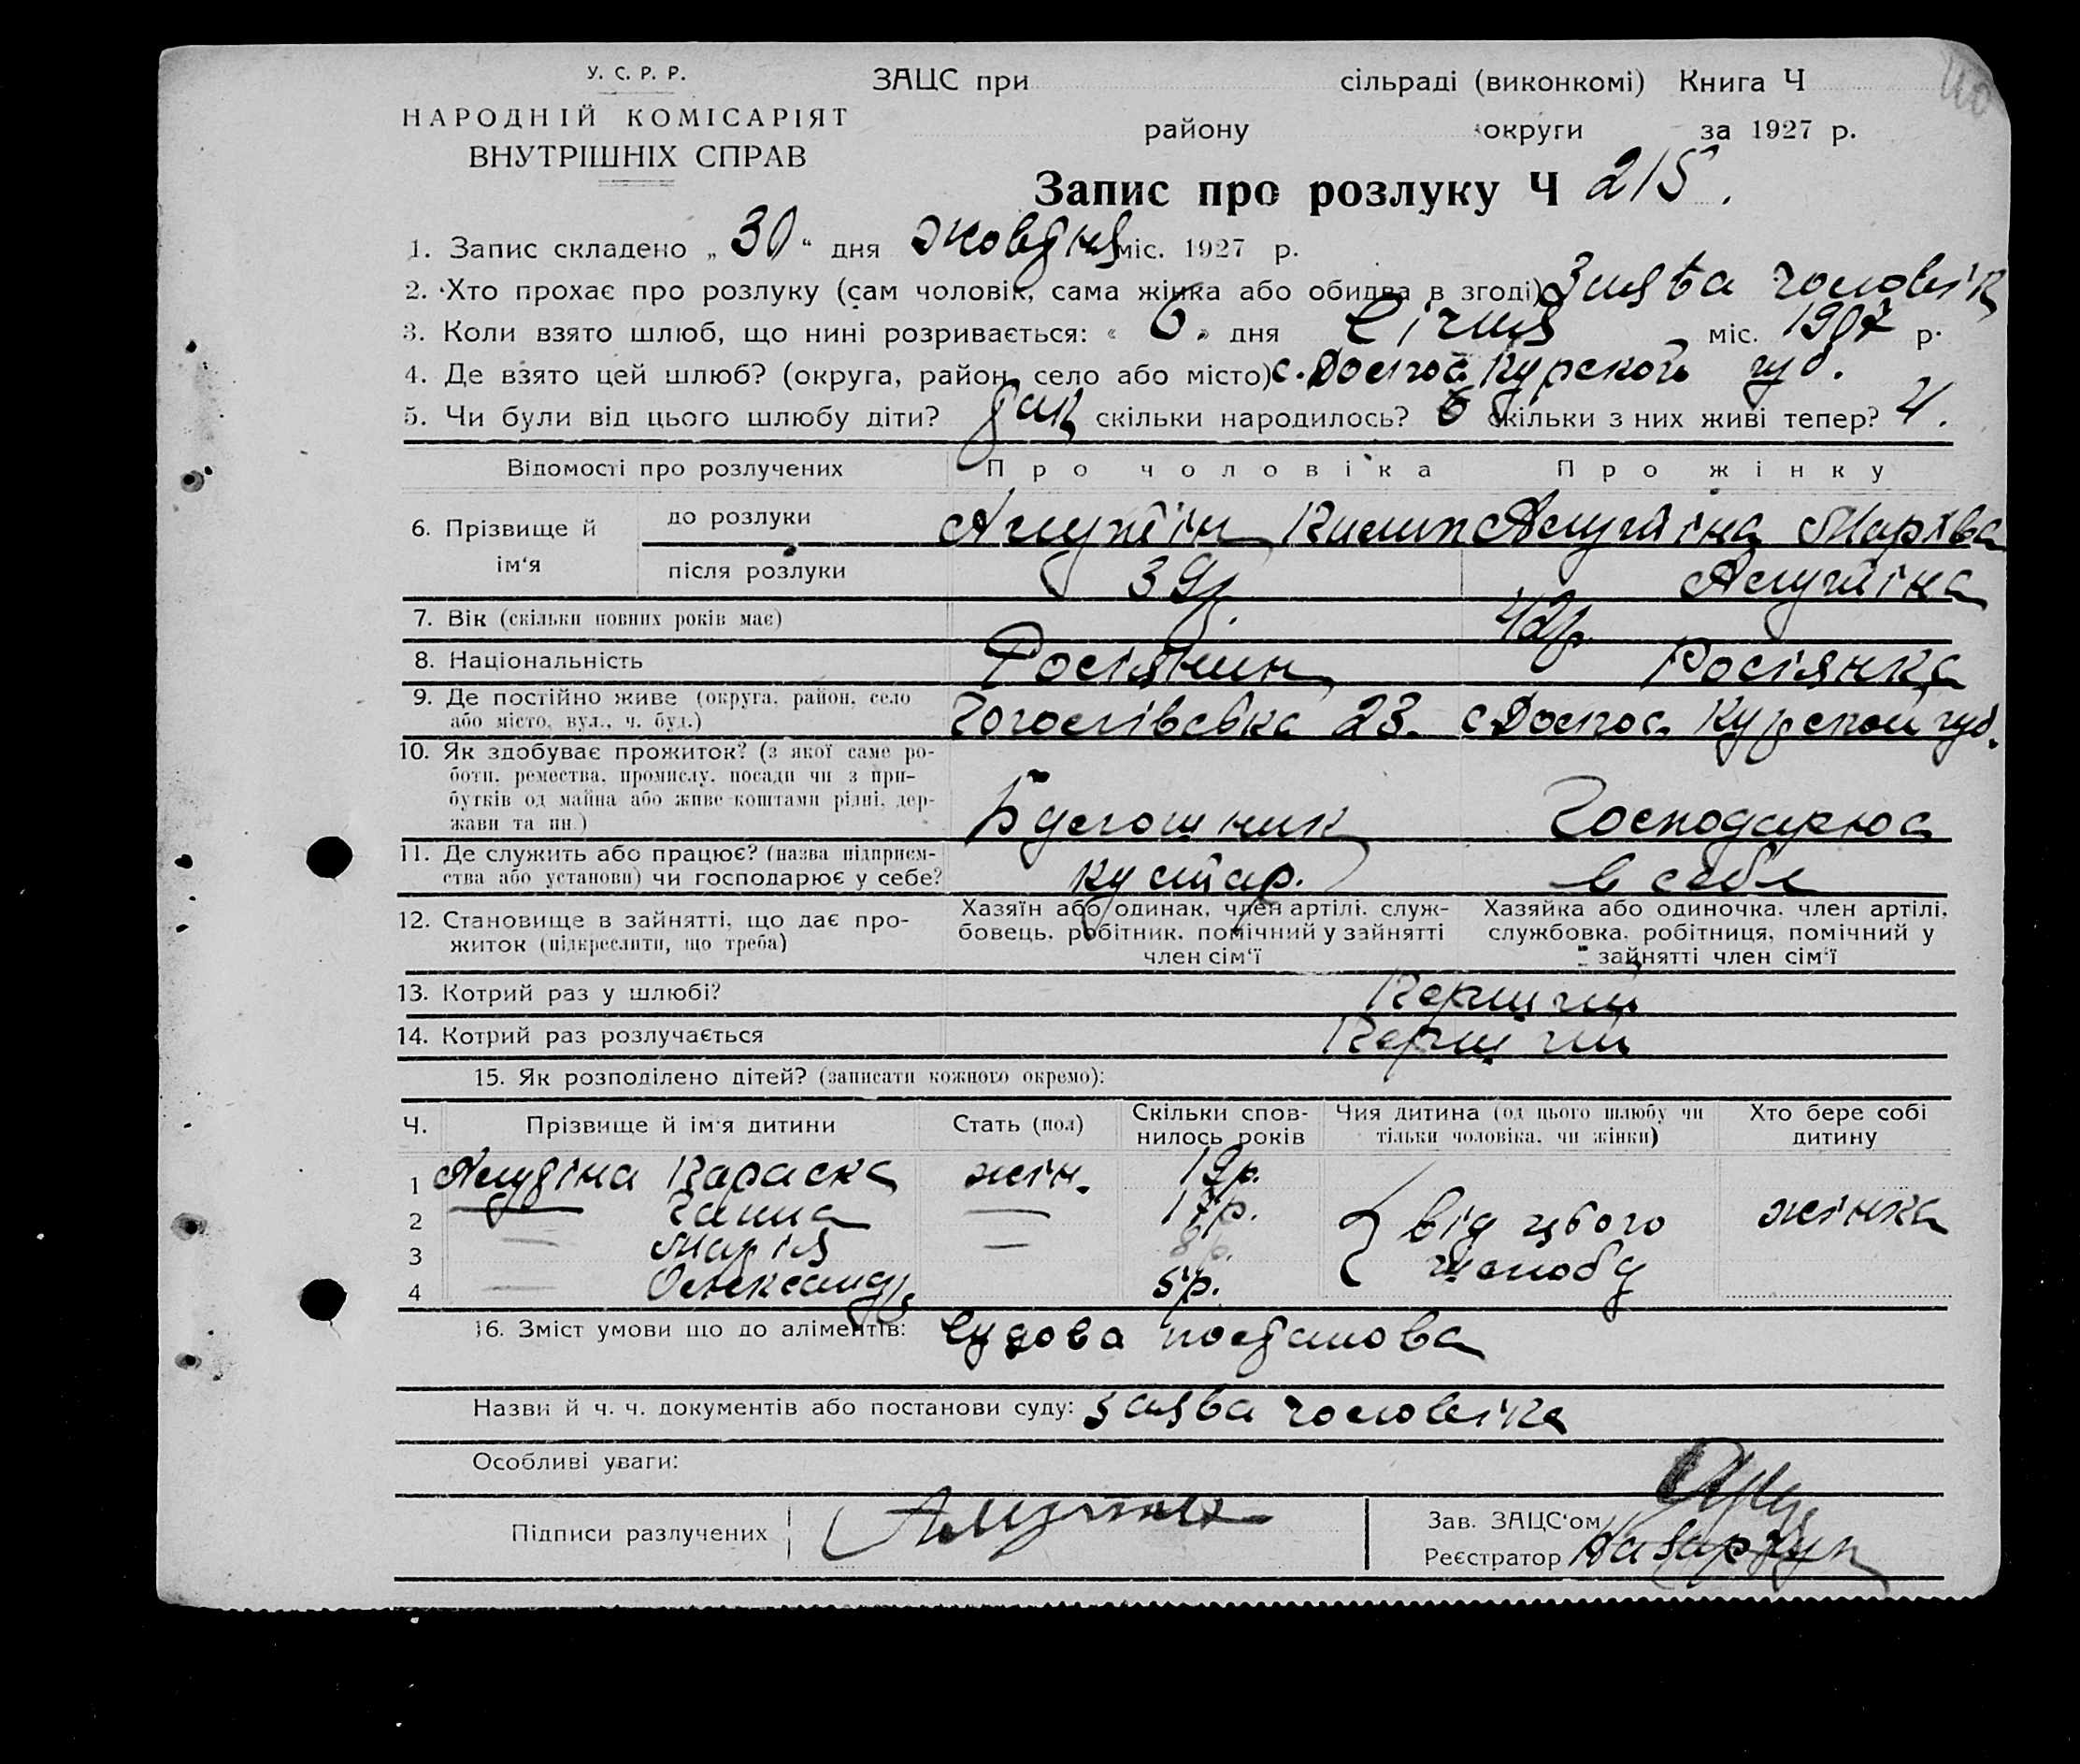 У. С. Р. Р.
НАРОДНІЙ КОМІСАРІЯТ
ВНУТРІШНІХ СПРАВ
ЗАЦС при сільраді (виконкомі) Книга Ч
району округи за 1927 р.
Запис про розлуку Ч 215.
1. Запис складено „ 30 “ дня жовтня міс. 1927 р.
2. Хто прохає про розлуку (сам чоловік, сама жінка або обидва в згоді) чоловік
3. Коли взято шлюб, що нині розривається: « 6 » дня Січня міс. 1907 р.
4. Де взято цей шлюб? (округа, район, село або місто) с. Курской губ.
5. Чи були від цього шлюбу діти? так скільки народилось? 6 скільки з них живі тепер? 4.
Відомості про розлучених Про чоловіка Про жінку
6. Прізвище й ім‘я до розлуки
після розлуки
7. Вік (скільки повних років має) 39р. 42р.
8. Національність Росіянин Росіянка
9. Де постійно живе (округа, район, село або місто, вул., ч. буд.) 23. с. Курской губ.
10. Як здобуває прожиток? (з якої саме роботи, ремества, промислу, посади чи з прибутків од майна або живе коштами рідні, держави та ин.) Господарює
11. Де служить або працює? (назва підприємства або установи) чи господарює у себе? кустар. в себе
12. Становище в зайнятті, що дає прожиток (підкреслити, що треба) Хазяїн або одинак, член артілі, службовець, робітник, помічний у зайнятті член сім‘ї Хазяйка або одиночка, член артілі, службовка, робітниця, помічний у зайнятті член сім‘ї
13. Котрий раз у шлюбі? Перший
14. Котрий раз розлучається Перший
15. Як розподілено дітей? (записати кожного окремо):
Ч. Прізвище й ім‘я дитини Стать (пол) Скільки сповнилось років Чия дитина (од цього шлюбу чи тільки чоловіка, чи жінки) Хто бере собі дитину
1 Параска жін. 19р.
2 Ганна — 17р. від цього шлюбу жінка
3 — Марія — 8р.
4 — Олександр 5р.
16. Зміст умови що до аліментів: Судова постанова
Назви й ч. ч. документів або постанови суду: заява чоловіка
Особливі уваги:
Підписи разлучених
Зав. ЗАЦС‘ом
Реєстратор